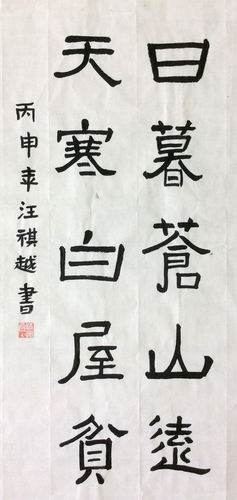 日暮蒼山遠
天寒白屋貧
丙申年汪祺越書